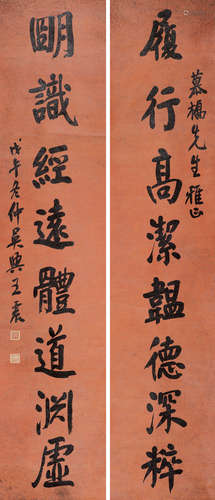 履行高潔韞德深粹
慕橋先生雅正
明識經遠體道淵虛
戊午冬仲吳興王震